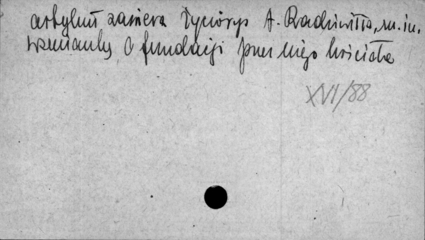 artykuł zawiera życiorys A. Radziwiłła, m. in.
wzmiankę o fundacji przez niego kościoła
XVI/88